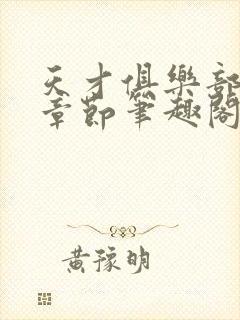 天才俱樂部
章節筆趣閣
黃豫明